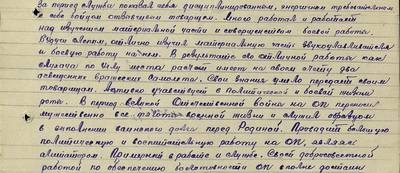 За период службы показал себя дисциплинированным, энергичным требовательным
к себе бойцом отзывчивым товарищем. Много работал и работает
над изучением материальной части и совершенством боевой работы.
Будучи слухачом, отлично изучил материальную часть звукоулавливателя
и боевую работу на нем. В результате его отличной работы как
слухача по цели расчет имеет на своем счету два
освещенных вражеских самолета. Свои знания умело передает своим
товарищам. Активно участвует в политической и боевой жизни
роты. В период Великой Отечественной войны на ОП переносил
мужественно все военной жизни и служил образцом
в выполнении воинского долга перед Родиной. Проводит большую
политическую и воспитательную работу на ОП, являясь
агитатором. Примерный в работе и службе. Своей добросовестной
работой по обеспечению боеготовности ОП вполне достоин